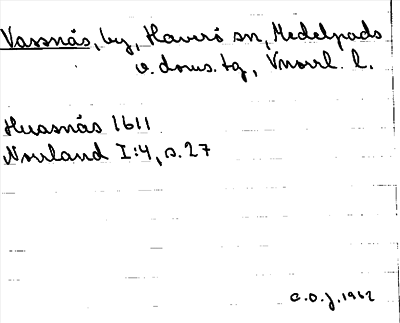 Vassnäs, by, Haverö sn, Medelpads
v. doms. tg, Vnorrl. l.
Huassnäs 1611
Norrland I:4, s. 27
C.O.J. 1962